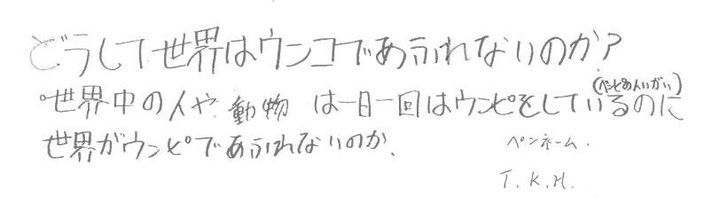 どうして世界はウンコであふれないのか？
世界中の人や動物は一日一回はウンピをしている(ベンピの人いがい)のに
世界がウンピであふれないのか、
ペンネーム．
T.K.H.